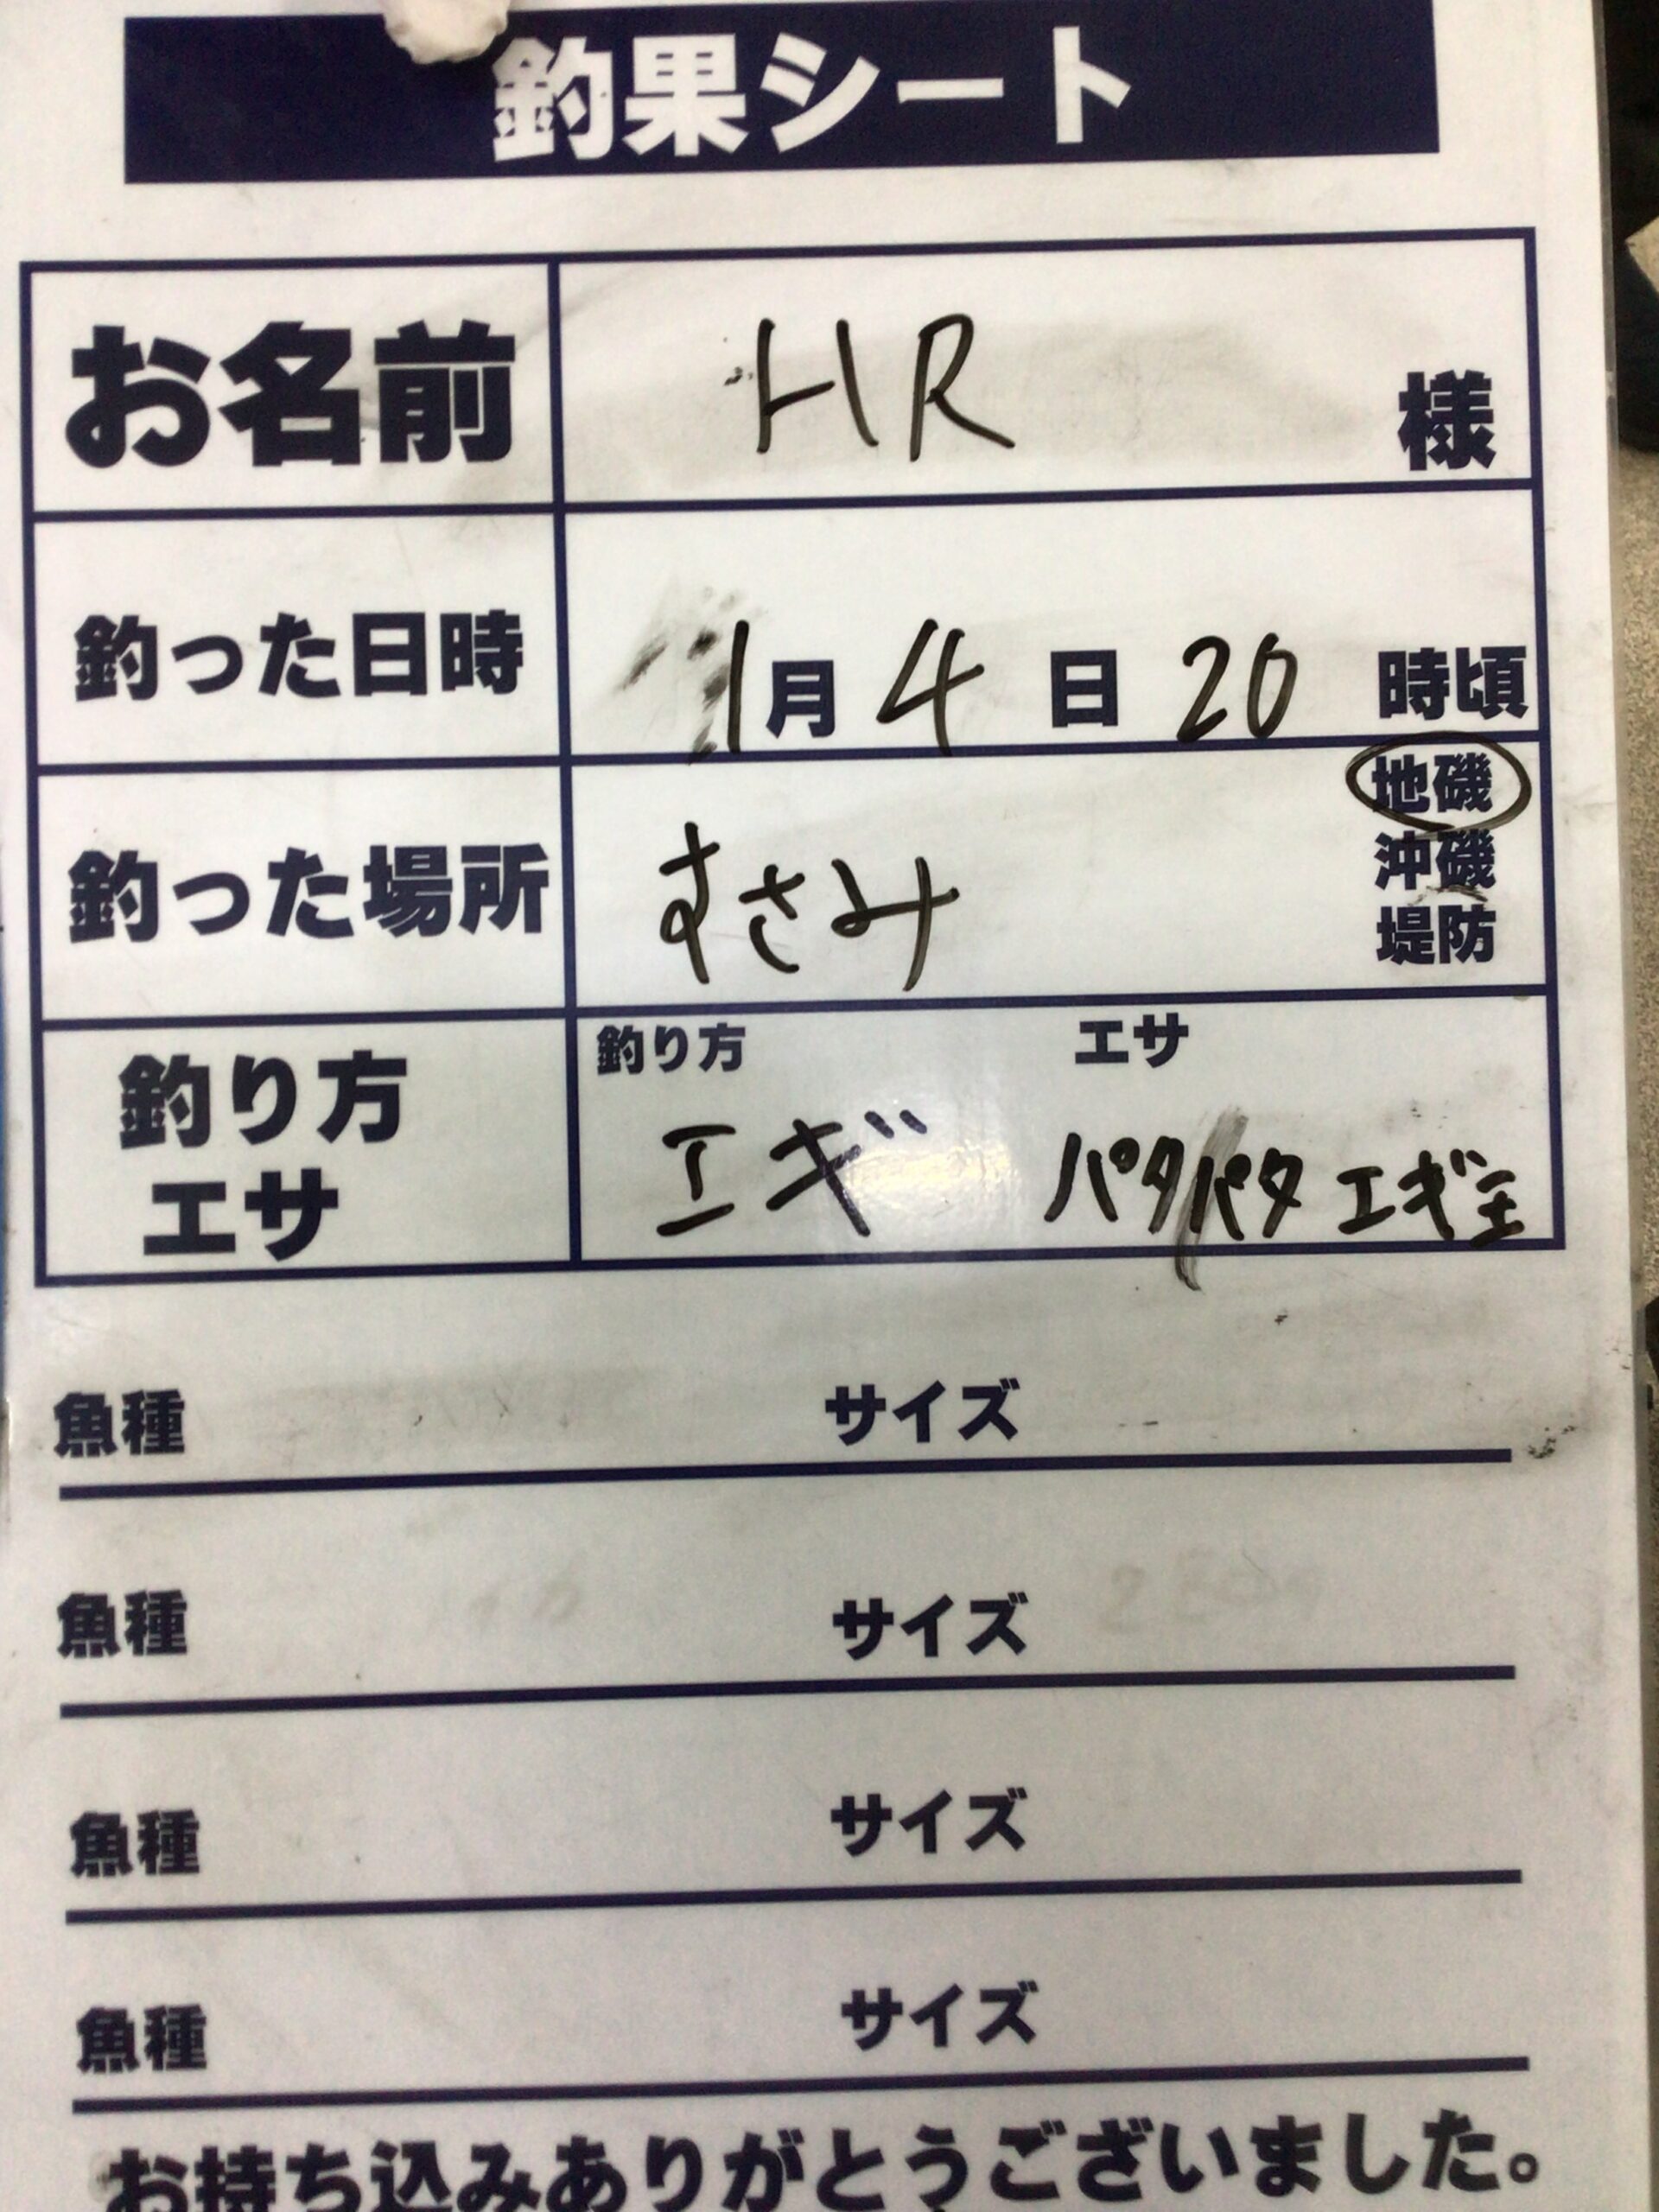 釣果シート
お名前 HR 様
釣った日時 1月4日20時頃
釣った場所 すさみ 地磯
沖磯
堤防
釣り方 エサ
釣り方 エギ
エサ パタパタ エギ王
魚種 サイズ
魚種 サイズ
魚種 サイズ
魚種 サイズ
お持ち込みありがとうございました。